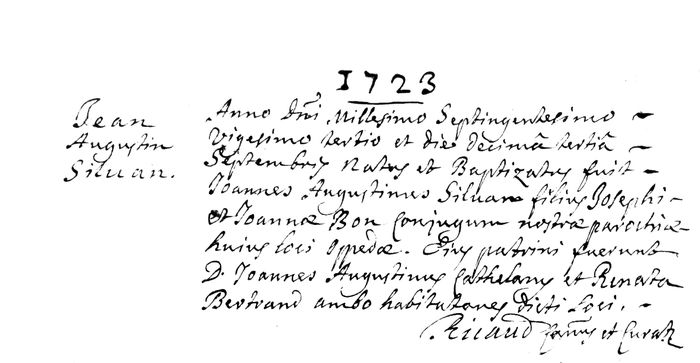 1723
Jean
Augustin
Siluan.
Anno Dñi Millesimo Septingentesimo ~
Vigesimo tertio et die decimâ tertiâ ~
Septembris Natus et Baptizatus fuit ~
Joannes Augustinus Siluan filius Josephi ~
et Joannæ Bon Conjugum nostræ parochiæ
huius loci Oppedæ. Eius patrini fuerunt
D. Joannes Augustinus Cathelany et Renata
Bertrand ambo habitatores dicti loci. ~
Ricaud et Curat